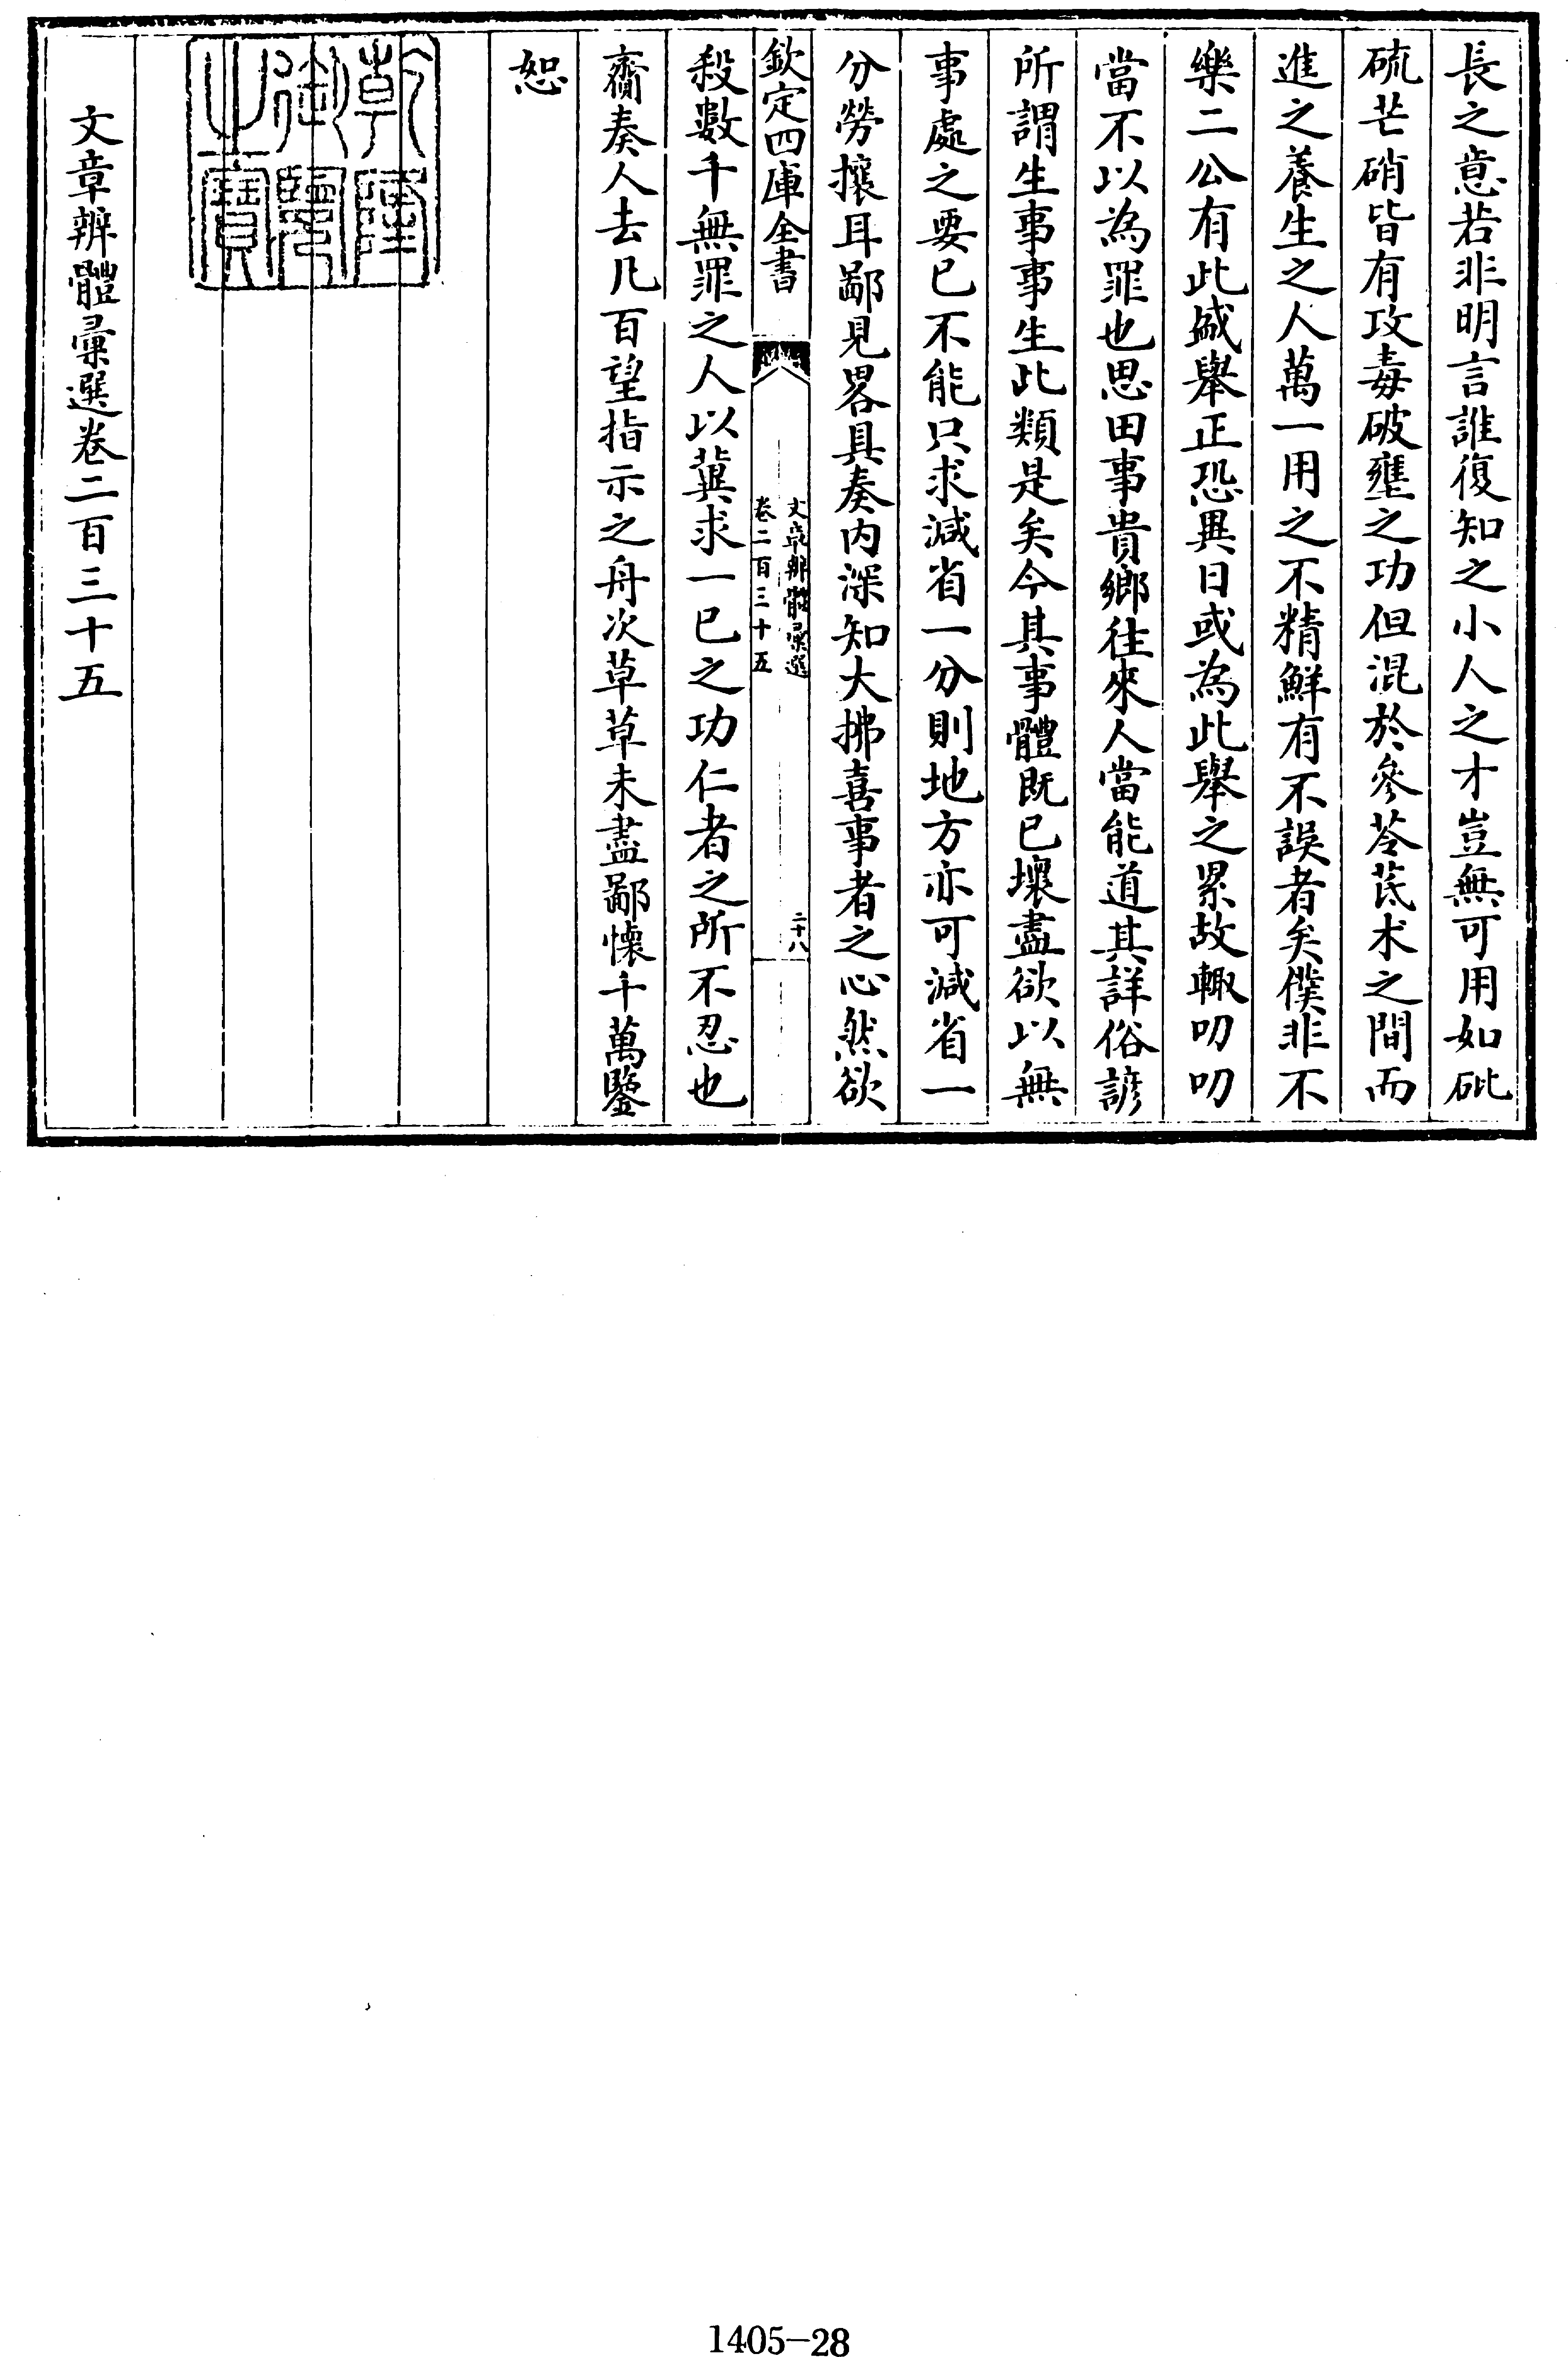 長之意若非明言誰復知之小人之才豈無可用如砒
硫芒硝皆有攻毒破壅之功但混於參苓芪术之間而
進之養生之人萬一用之不精鮮有不誤者矣僕非不
樂二公有此盛舉正恐異日或為此舉之累故輙叨叨
當不以為罪也思田事貴鄉往來人當能道其詳俗諺
所謂生事事生此類是矣今其事體既已壞盡欲以無
事處之要已不能只求減省一分則地方亦可減省一
分勞攘耳鄙見畧具奏內深知大拂喜事者之心然欲
欽定四庫全書
文章辨體彙選
卷二百三十五
二十八
殺數千無罪之人以冀求一已之功仁者之所不忍也
齎奏人去凡百望指示之舟次草草未盡鄙懷千萬鑒
恕
乾隆
御覽
之寶
文章辨體彙選卷二百三十五
1405-28